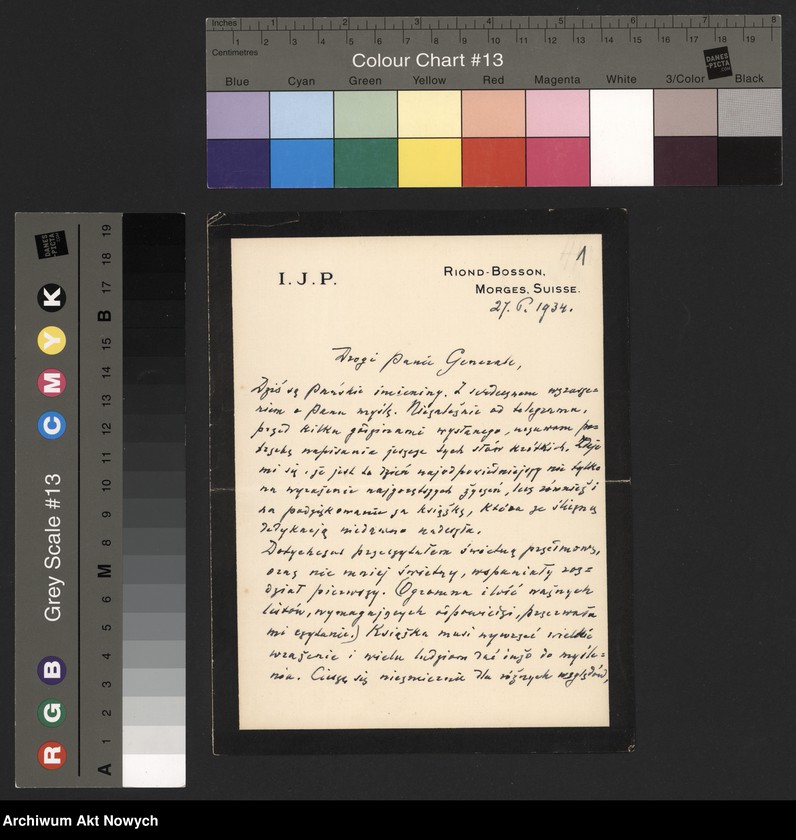 Inches 1 2 3 4 5 6 7 8
Centimetres 1 2 3 4 5 6 7 8 9 10 11 12 13 14 15 16 17 18 19
Colour Chart #13
DANES
-PICTA
.COM
Blue Cyan Green Yellow Red Magenta White 3/Color Black
Grey Scale #13
DANES
-PICTA
.COM
R G B C M Y K
A 1 2 3 4 5 6 M 8 9 10 11 12 13 14 15 B 17 18 19
1
I. J. P.
RIOND-BOSSON,
MORGES, SUISSE.
27. 1934.
Drogi Panie Generale,
Dziś są Pańskie imieniny. Z serdecznem wzrusze-
niem o Panu myślę. Niezależnie od telegramu,
przed kilku godzinami wysłanego, uczuwam po-
trzebę napisania jeszcze tych słów krótkich. Zdaje
mi się, że jest to dzień najodpowiedniejszy nie tylko
na wyrażenie najgorętszych życzeń, lecz również i
na podziękowanie za książkę, która ze śliczną
dedykacją niedawno nadeszła.
Dotychczas przeczytałem świetną przedmowę,
oraz nie mniej świetny, wspaniały roz=
dział pierwszy. Ogromna ilość ważnych
listów, wymagających odpowiedzi, przerwała
mi czytanie.) Książka musi wywrzeć wielkie
wrażenie i wielu ludziom dać dużo do myśle=
nia. Cieszę się niezmiernie dla różnych względów,
Archiwum Akt Nowych